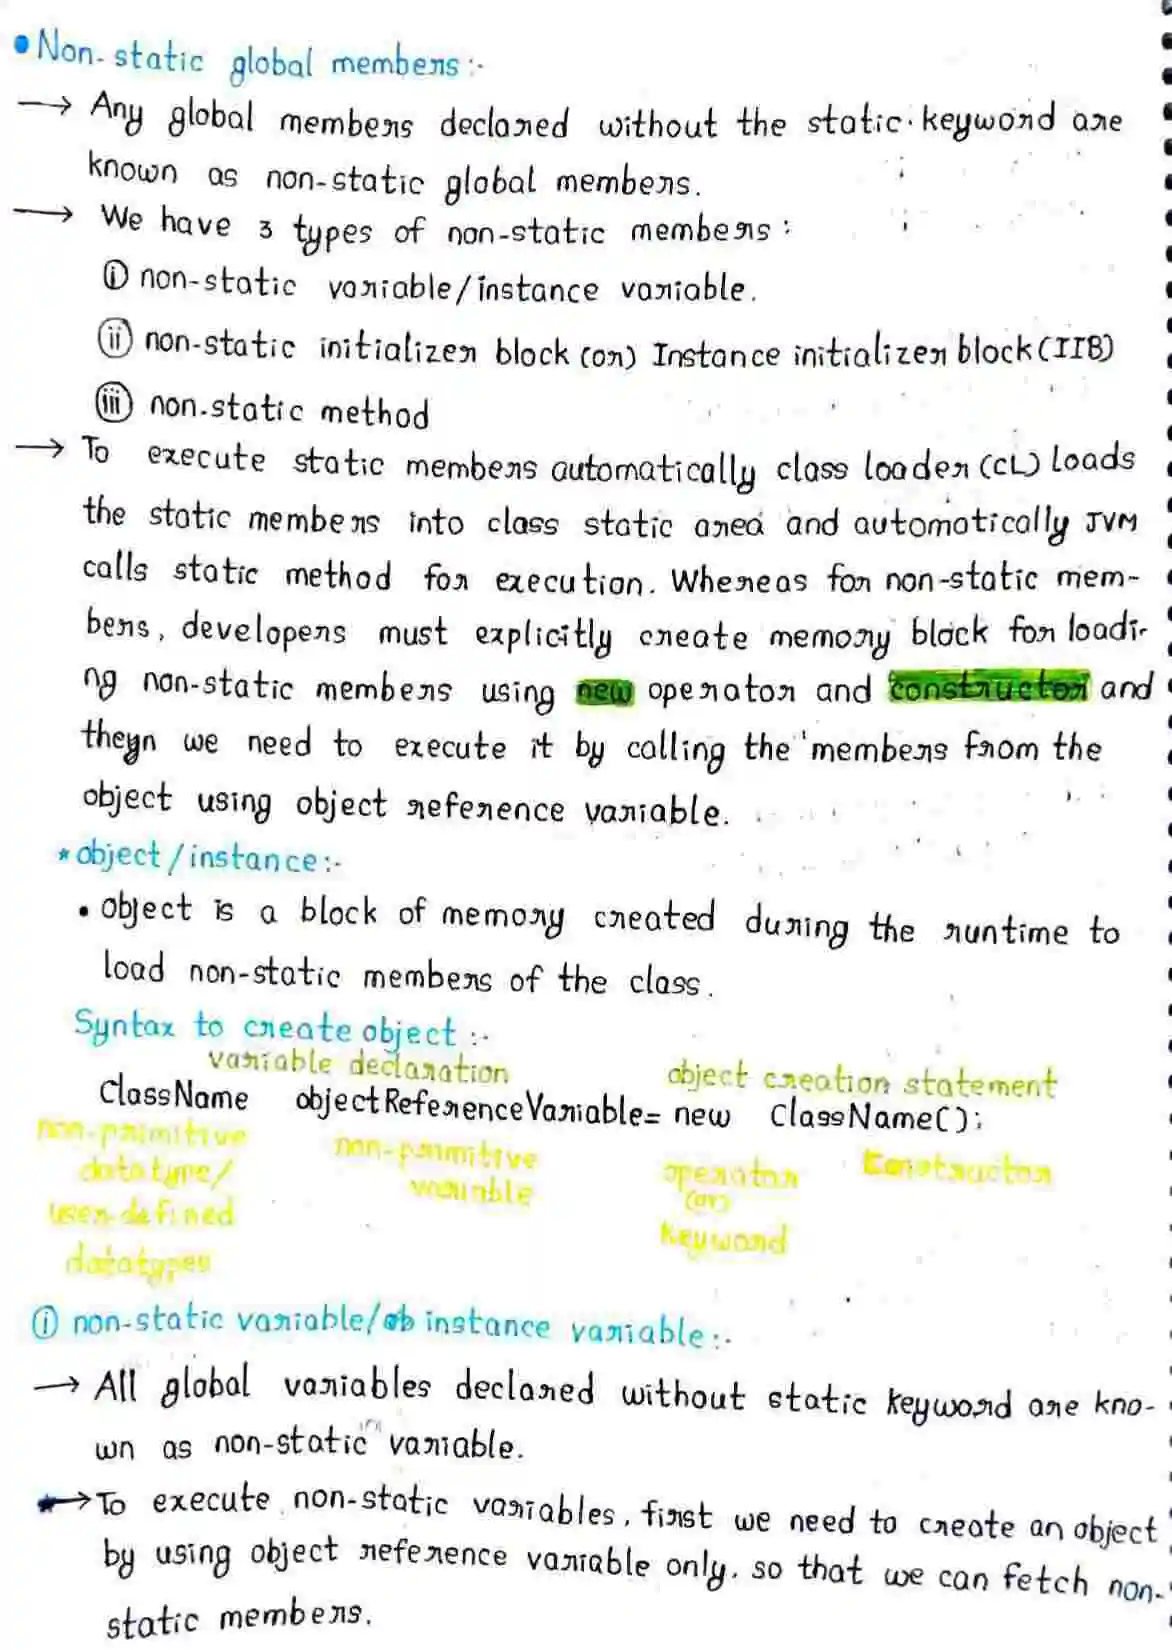 • Non-static global members:-
→ Any global members declared without the static keyword are
known as non-static global members.
→ We have 3 types of non-static members:
(i) non-static variable/instance variable.
(ii) non-static initializer block (or) Instance initializer block (IIB)
(iii) non-static method
→ To execute static members automatically class loader (CL) loads
the static members into class static area and automatically JVM
calls static method for execution. Whereas for non-static mem-
bers, developers must explicitly create memory block for loadi-
ng non-static members using new operator and constructor and
theyn we need to execute it by calling the members from the
object using object reference variable.
* object/instance:-
• object is a block of memory created during the runtime to
load non-static members of the class.
Syntax to create object :-
variable declaration object creation statement
ClassName objectReferenceVariable= new ClassName();
non-primitive datatype/ user-defined datatypes
non-primitive variable
operator (or) keyword
Constructor
(i) non-static variable/ob instance variable:-
→ All global variables declared without static keyword are kno-
wn as non-static variable.
★→ To execute non-static variables, first we need to create an object
by using object reference variable only. so that we can fetch non-
static members.